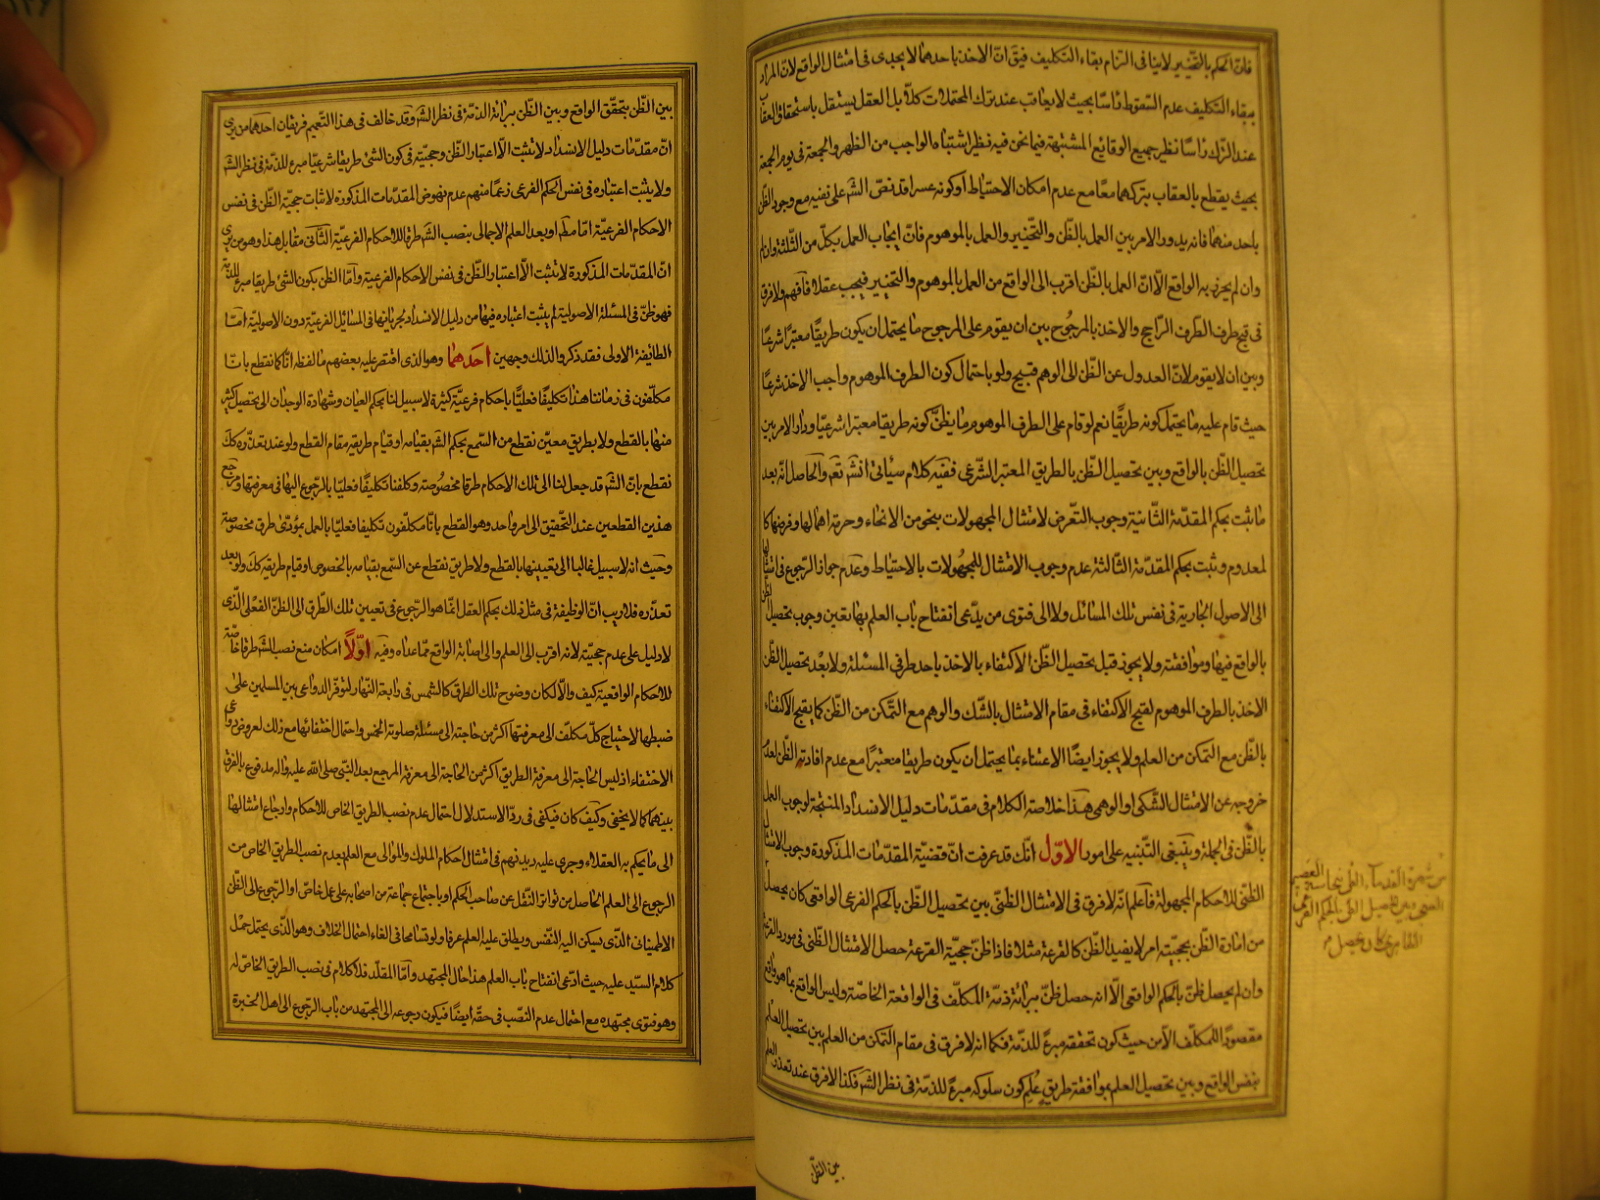 فانّ الحكم بالتخيير لاينافى التزام بقاء التكليف فيق انّ الاخذ باحدهما لايجدى فى امتثال الواقع لانّ المراد
ببقاء التكليف عدم السقوط رأسًا بحيث لايعاقب عند ترك المحتملات كلا بل العقل يستقل باستحقاق العقاب
عند الترك رأسًا نظير جميع الوقايع المشتبهة فما نحن فيه نظير اشتباه الواجب من الظهر والجمعة فى يوم الجمعة
بحيث يقطع بالعقاب بتركهما معًا مع عدم امكان الاحتياط او كونه عسرا قد نصّ الش على نفيه مع وجود الظن
باحد منهما فانه يدور الامر بين العمل بالظن والتخيير والعمل بالموهوم فانّ ايجاب العمل بكلّ من الثلثة وان لم
وان لم يحرز به الواقع الّا انّ العمل بالظن اقرب الى الواقع من العمل بالموهوم والتخيير فيجب عقلا فافهم ولا فرق
فى قبح طرف الطرف الراجح والاخذ بالمرجُوح بين ان يقوم على المرجوح ما يحتمل ان يكون طريقًا معتبرًا شرعًا
وبين ان لا يقوم لانّ العدول عن الظن الى الوهم قبيح ولو باحتمال كون الطرف الموهوم واجب الاخذ شرعًا
حيث قام عليه ما يحتمل كونه طريقًا نعم لو قام على الطرف الموهوم ما يظنّ كونه طريقا معتبرا شرعيّا ودار الامر بين
تحصيل الظن بالواقع وبين تحصيل الظن بالطريق المعتبر الشرعى ففيه كلام سيأتى انش تع والحاصل انّه بعد
ما ثبت بحكم المقدّمة الثانية وجوب التعرّض لامتثال المجهولات بنحو من الانحاء وحرمة اهمالها وفرضها كا
لمعدوم وثبت بحكم المقدّمة الثالثة عدم وجوب الامتثال للمجهُولات بالاحتياط وعدم جواز الرجوع فى امتثالها
الى الاصول الجارية فى نفس تلك المسائل ولا الى فتوى من يدّعى انفتاح باب العلم بها تعين وجوب تحصيل الظن
بالواقع فيها وموافقته ولا يجوز قبل تحصيل الظن الاكتفاء بالاخذ باحد طرفى المسئلة ولا بعد تحصيل الظن
الاخذ بالطرف الموهوم لقبح الاكتفاء فى مقام الامتثال بالشك والوهم مع التمكن من الظن كما يقبح الاكتفاء
بالظن مع التمكن من العلم ولا يجوز ايضًا الاعتناء بما يحتمل ان يكون طريقا معتبرًا مع عدم افادته الظن لعدم
خروجه عن الامتثال الشكى او الوهمى هذا خلاصة الكلام فى مقدّمات دليل الانسداد المنتجة لوجوب العمل
بالظن فى الجملة وينبغى التنبيه على امور الاوّل انّك قد عرفت انّ قضيّة المقدّمات المذكورة وجوب الامتثال
الظنى للاحكام المجهولة فاعلم انّه لا فرق فى الامتثال الظنى بين تحصيل الظن بالحكم الفرعى الواقعى كان يحصل
من امارة الظن بحجيّة امر لا يفيد الظن كالقرعة مثلا فاذا ظنّ حجيّة القرعة حصل الامتثال الظنى فى مورد القرعة
وان لم يحصل ظنّ بالحكم الواقعى الّا انه حصل ظنّ ببرائة ذمّة المكلّف فى الواقعة الخاصّة وليس الواقع بما هو واقع
مقصودًا للمكلّف الّا من حيث كون تحققه مبرءً للذمّة فكما انه لا فرق فى مقام التمكن من العلم بين تحصيل العلم
بنفس الواقع وبين تحصيل العلم بموافقة طريق عُلِم كون سلوكه مبرءً للذمّة فى نظر الش فكذا لا فرق عند تعذر العلم
بين الظنّ
بين الظنّ بتحقّق الواقع وبين الظنّ ببرائة الذمّة فى نظر الش وقد خالف فى هذا التعميم فريقان احدهما من يرى
انّ مقدّمات دليل الانسداد لا تثبت الّا اعتبار الظن وحجيّته فى كون الشئ طريقا شرعيّا مبرء للذمّة فى نظر الش
ولا يثبت اعتباره فى نفس الحكم الفرعى زعمًا منهم عدم نهوض المقدّمات المذكورة لاثبات حجيّة الظن فى نفس
الاحكام الفرعيّة امّا مط او بعد العلم الاجمالى بنصب الش طرقا للاحكام الفرعيّة الثانى مقابل هذا وهو من يرى
انّ المقدّمات المذكورة لا تثبت الّا اعتبار الظن فى نفس الاحكام الفرعية وامّا الظن بكون الشئ طريقا مبرء للذمّة
فهو ظنّ فى المسئلة الاصولية لم يثبت اعتباره فيها من دليل الانسداد لجريانها فى المسائل الفرعيّة دون الاصوليّة امّا
الطائفة الاولى فقد ذكروا لذلك وجهين احدهما وهو الذى اقتصر عليه بعضهم ما لفظه انّا كما نقطع بانّا
مكلّفون فى زماننا هذا تكليفًا فعليًّا باحكام فرعيّة كثيرة لا سبيل لنا بحكم العيان وشهادة الوجدان الى تحصيل كثير
منها بالقطع ولا بطريق معيّن نقطع من السّمع بحكم الش بقيامه او قيام طريقه مقام القطع ولو عند تعذّره كك
نقطع بانّ الش قد جعل لنا الى تلك الاحكام طرقا مخصُوصة وكلفنا تكليفًا فعليّا بالرجوع اليها فى معرفتها ومرجع
هذين القطعين عند التحقيق الى امر واحد وهو القطع بانّا مكلّفون تكليفا فعليّا بالعمل بمؤدّى طرق مخصوصة
وحيث انه لا سبيل غالبا الى تعيينها بالقطع ولا طريق نقطع عن السّمع بقيامه بالخصوص او قيام طريقه كك ولو بعد
تعذّره فلا ريب انّ الوظيفة فى مثل ذلك بحكم العقل انّما هو الرّجوع فى تعيين تلك الطرق الى الظن الفعلى الّذى
لا دليل على عدم حجيّته لانه اقرب الى العلم والى اصابة الواقع ممّا عداه وفيه اوّلاً امكان منع نصب الش طرقا خاصّة
للاحكام الواقعية كيف والّا لكان وضوح تلك الطرق كالشمس فى رابعة النّهار لتوفّر الدواعى بين المسلمين على
ضبطها لاحتياج كلّ مكلّف الى معرفتها اكثر من حاجته الى مسئلة صلوته الخمس واحتمال اختفائها مع ذلك لعروض دواعى
الاختفاء اذ ليس الحاجة الى معرفة الطريق اكثر من الحاجة الى معرفة المرجع بعد النّبى صلى الله عليه واله مدفوع بالفرق
بينهما كما لا يخفى وكيف كان فيكفى فى ردّ الاستدلال احتمال عدم نصب الطريق الخاص للاحكام وارجاع امتثالها
الى ما يحكم به العقلاء وجرى عليه ديدنهم فى امتثال احكام الملوك والموالى مع العلم بعدم نصب الطريق الخاص من
الرجوع الى العلم الحاصل من تواتر النّقل عن صاحب الحكم او باجتماع جماعة من اصحابه على عمل خاصّ او الرّجوع الى الظن
الاطمينانى الّذى يسكن اليه النّفس ويطلق عليه العلم عرفا ولو تسامحا فى الغاء احتمال الخلاف وهو الّذى يحتمل حمل
كلام السيّد عليه حيث ادّعى انفتاح باب العلم هذا حال المجتهد وامّا المقلّد فلا كلام فى نصب الطريق الخاصّ له
وهو فتوى مجتهده مع احتمال عدم النّصب فى حقّه ايضًا فيكون رجوعه الى المجتهد من باب الرّجوع الى اهل الخبرة